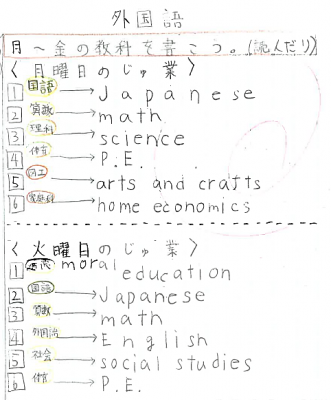 外国語
月〜金の教科を書こう。(読んだり)
〈月曜日のじゅ業〉
1 国語→Japanese
2 算数→math
3 理科→science
4 体育→P.E.
5 図工→arts and crafts
6 家庭科→home economics
〈火曜日のじゅ業〉
1 道徳 moral education
2 国語→Japanese
3 算数→math
4 外国語→English
5 社会→social studies
6 体育→P.E.